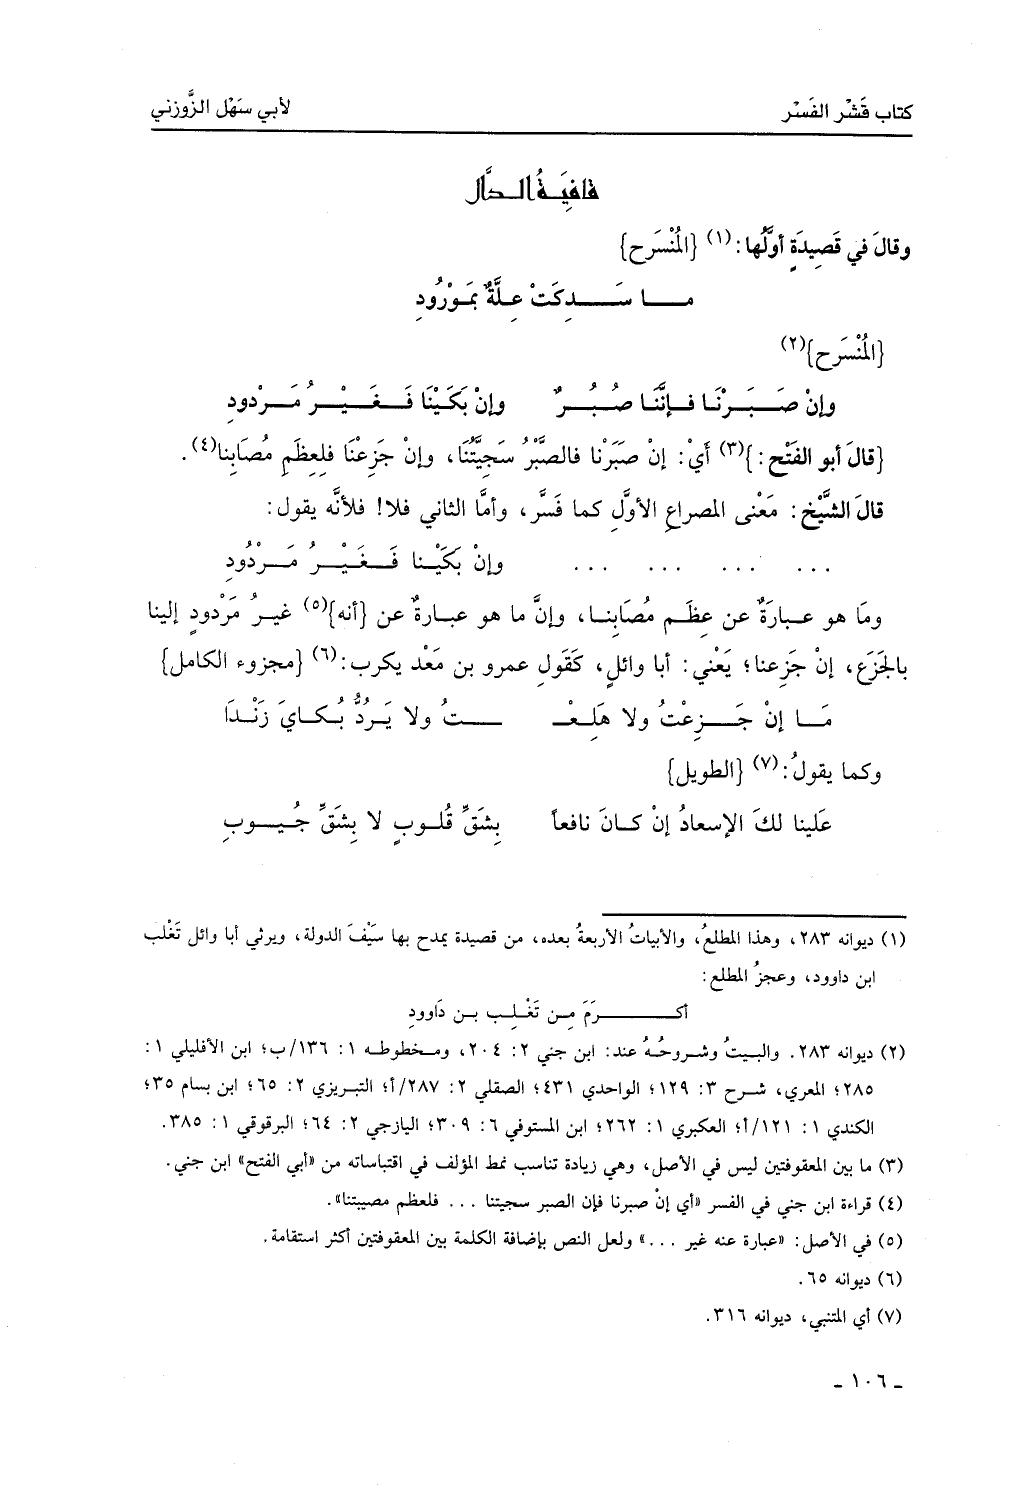 كتاب قَشْر الفَسْر
لأبي سَهْل الزَّوزني
قافِيَةُ الدَّال
وقالَ في قَصِيدَةٍ أوَّلُها: (١) {المُنْسَرح}
مــا سَــدِكَتْ عِلَّةٌ بمَوْرُودِ
{المُنْسَرح}(٢)
وإنْ صَبَرْنَا فإنَّنَا صُبُرٌ وإنْ بَكَيْنَا فَغَيْرُ مَرْدودِ
{قالَ أبو الفَتْح:}(٣) أَيْ: إنْ صَبَرْنا فالصَّبْرُ سَجِيَّتُنَا، وإنْ جَزِعْنَا فلِعِظَمِ مُصَابِنا(٤).
قالَ الشَّيْخ: مَعْنى المصراعِ الأوَّلِ كما فَسَّر، وأمَّا الثاني فلا! فلأنَّه يقول:
... ... ... ... وإنْ بَكَيْنا فَغَيْرُ مَرْدُودِ
ومَا هو عبارَةٌ عن عِظَمِ مُصَابِنا، وإنَّ ما هو عبارةٌ عن {أنه}(٥) غيرُ مَرْدودٍ إلينا
بالجَزَع، إنْ جَزِعنا؛ يَعْني: أبا وائلٍ، كَقَولِ عمرو بن مَعْد يكرب:(٦) {مجزوء الكامل}
مَــا إنْ جَــزِعْتُ ولا هَلِعْــ ــتُ ولا يَرُدُّ بُكَايَ زَنْدَا
وكما يقولُ:(٧) {الطويل}
عَلينا لكَ الإسعادُ إنْ كانَ نافعاً بِشَقِّ قُلوبٍ لا بِشَقِّ جُيوبِ
(١) ديوانه ٢٨٣، وهذا المطلعُ، والأبياتُ الأربعةُ بعده، من قصيدة يمدح بها سَيْفَ الدولة، ويرثي أبا وائل تَغْلب
ابن داوود، وعجزُ المطلع:
أكــرَمَ مِن تَغْلِب بن دَاوودِ
(٢) ديوانه ٢٨٣. والبيتُ وشروحُهُ عند: ابن جني ٢: ٢٠٤، ومخطوطه ١: ١٣٦/ب؛ ابن الأفليلي ١:
٢٨٥؛ المعري، شرح ٣: ١٢٩؛ الواحدي ٤٣١؛ الصقلي ٢: ٢٨٧/أ؛ التبريزي ٢: ٦٥؛ ابن بسام ٣٥؛
الكندي ١: ١٢١/أ؛ العكبري ١: ٢٦٢؛ ابن المستوفي ٦: ٣٠٩؛ اليازجي ٢: ٦٤؛ البرقوقي ١: ٣٨٥.
(٣) ما بين المعقوفتين ليس في الأصل، وهي زيادة تناسب نمط المؤلف في اقتباساته من «أبي الفتح» ابن جني.
(٤) قراءة ابن جني في الفسر «أي إنْ صبرنا فإن الصبر سجيتنا ... فلعظم مصيبتنا».
(٥) في الأصل: «عبارة عنه غير ...» ولعل النص بإضافة الكلمة بين المعقوفتين أكثر استقامة.
(٦) ديوانه ٦٥.
(٧) أي المتنبي، ديوانه ٣١٦.
ـ ١٠٦ ـ